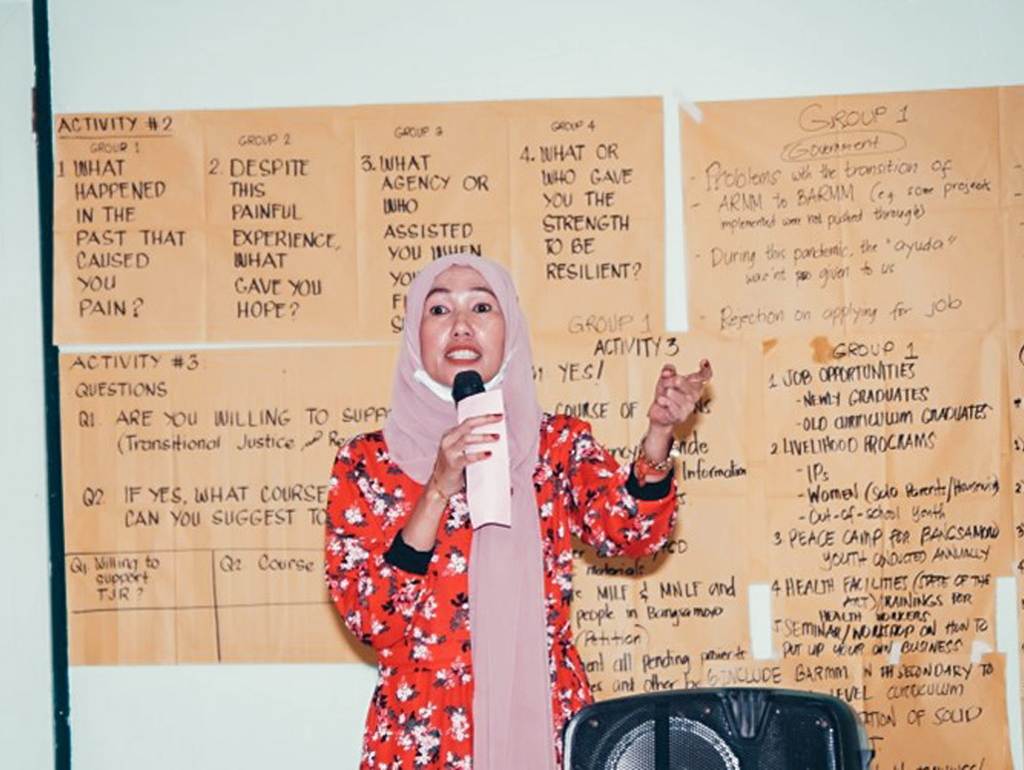 ACTIVITY #2
GROUP 1
1 WHAT
HAPPENED
IN THE
PAST THAT
CAUSED
YOU
PAIN?
GROUP 2
2. DESPITE
THIS
PAINFUL
EXPERIENCE,
WHAT
GAVE YOU
HOPE?
GROUP 3
3. WHAT
AGENCY OR
WHO
ASSISTED
YOU WHEN
GROUP 4
4. WHAT OR
WHO GAVE
YOU THE
STRENGTH
TO BE
RESILIENT?
GROUP 1
Government
- Problems with the transition of
- ARMM to BARMM (e.g. some projects
implemented were not pushed through)
- During this pandemic, the "ayuda"
was'nt given to us
- Rejection on applying for job
ACTIVITY #3
QUESTIONS
Q1. ARE YOU WILLING TO
(Transitional Justice and
Q2. IF YES, WHAT COURSE
CAN YOU SUGGEST TO
Q1. Willing to
support
TJR?
Q2 Course
GROUP 1
ACTIVITY 3
YES!
COURSE OF
Information
materials
MILF & MNLF and
people in Bangsamoro
(Petition)
all pending
and other
GROUP 1
1. JOB OPPORTUNITIES
- NEWLY GRADUATES
- OLD CURRICULUM GRADUATES
2. LIVELIHOOD PROGRAMS
- IPs
- WOMEN (Solo Parents/
- Out-of-school youth
3. PEACE CAMP FOR BANGSAMORO
YOUTH CONDUCTED ANNUALLY
4 HEALTH FACILITIES (STATE OF THE
ART)/TRAININGS FOR
HEALTH WORKERS
SEMINAR/WORKSHOP ON HOW TO
PUT UP YOUR OWN BUSINESS
6 INCLUDE BARMM IN THE SECONDARY TO
LEVEL CURRICULUM
OF SOLID